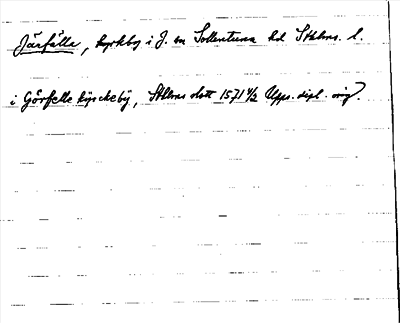 Järfälla, kyrkby i J. sn Sollentuna hd Sthlms. l.
i Görfelle kyrckeby, Sthlms slott 1571 4/2 Upps. dipl. orig.